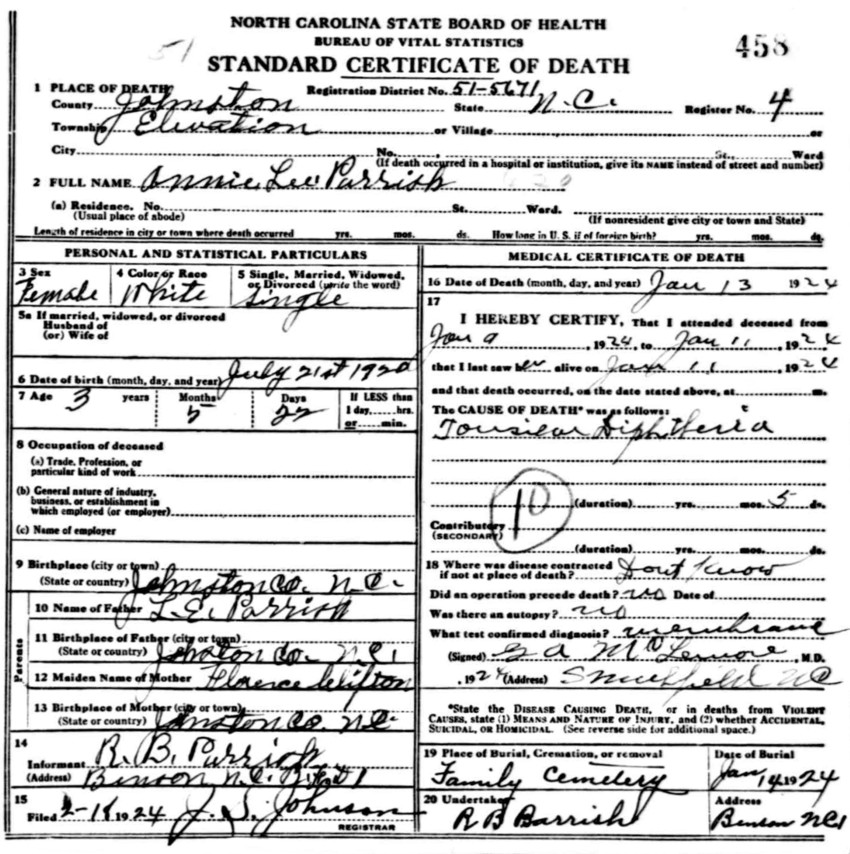 NORTH CAROLINA STATE BOARD OF HEALTH
BUREAU OF VITAL STATISTICS
51
458
STANDARD CERTIFICATE OF DEATH
1 PLACE OF DEATH Registration District No. 51-5671
County Johnston State N.C. Register No. 4
Township Elevation or Village or
City No. St., Ward
(If death occurred in a hospital or institution, give its NAME instead of street and number)
2 FULL NAME Annie Lee Parrish
(a) Residence. No. St. Ward.
(Usual place of abode) (If nonresident give city or town and State)
Length of residence in city or town where death occurred yrs. mos. ds. How long in U. S. if of foreign birth? yrs. mos. ds.
PERSONAL AND STATISTICAL PARTICULARS
3 Sex 4 Color or Race 5 Single, Married, Widowed, or Divorced (write the word)
Female White Single
5a If married, widowed, or divorced
Husband of
(or) Wife of
6 Date of birth (month, day, and year) July 21st 1920
7 Age 3 years Months 5 Days 22 If LESS than
1 day, hrs.
or min.
8 Occupation of deceased
(a) Trade, Profession, or
particular kind of work
(b) General nature of industry,
business, or establishment in
which employed (or employer)
(c) Name of employer
9 Birthplace (city or town)
(State or country) Johnston Co. N.C.
Parents
10 Name of Father L. E. Parrish
11 Birthplace of Father (city or town)
(State or country) Johnston Co. N.C.
12 Maiden Name of Mother Florence Clifton
13 Birthplace of Mother (city or town)
(State or country) Johnston Co. N.C.
14
Informant R. B. Parrish
(Address) Benson N.C.
15
Filed 1924 J. S. Johnson
REGISTRAR
MEDICAL CERTIFICATE OF DEATH
16 Date of Death (month, day, and year) Jan 13 1924
17
I HEREBY CERTIFY, That I attended deceased from
Jan 9, 1924, to Jan 11, 1924
that I last saw her alive on Jan 11, 1924
and that death occurred, on the date stated above, at m.
The CAUSE OF DEATH* was as follows:
Tonsilar Diphtheria
10
(duration) yrs. mos. 5 ds.
Contributory
(SECONDARY)
(duration) yrs. mos. ds.
18 Where was disease contracted
if not at place of death? Dont know
Did an operation precede death? no Date of
Was there an autopsy? no
What test confirmed diagnosis? membrane
(Signed) G A McLemore, M.D.
, 1924 (Address) Smithfield NC
*State the DISEASE CAUSING DEATH, or in deaths from VIOLENT
CAUSES, state (1) MEANS AND NATURE OF INJURY, and (2) whether ACCIDENTAL,
SUICIDAL, or HOMICIDAL. (See reverse side for additional space.)
19 Place of Burial, Cremation, or removal Date of Burial
Family Cemetery Jan 14 1924
20 Undertaker Address
R B Barrish Benson NC